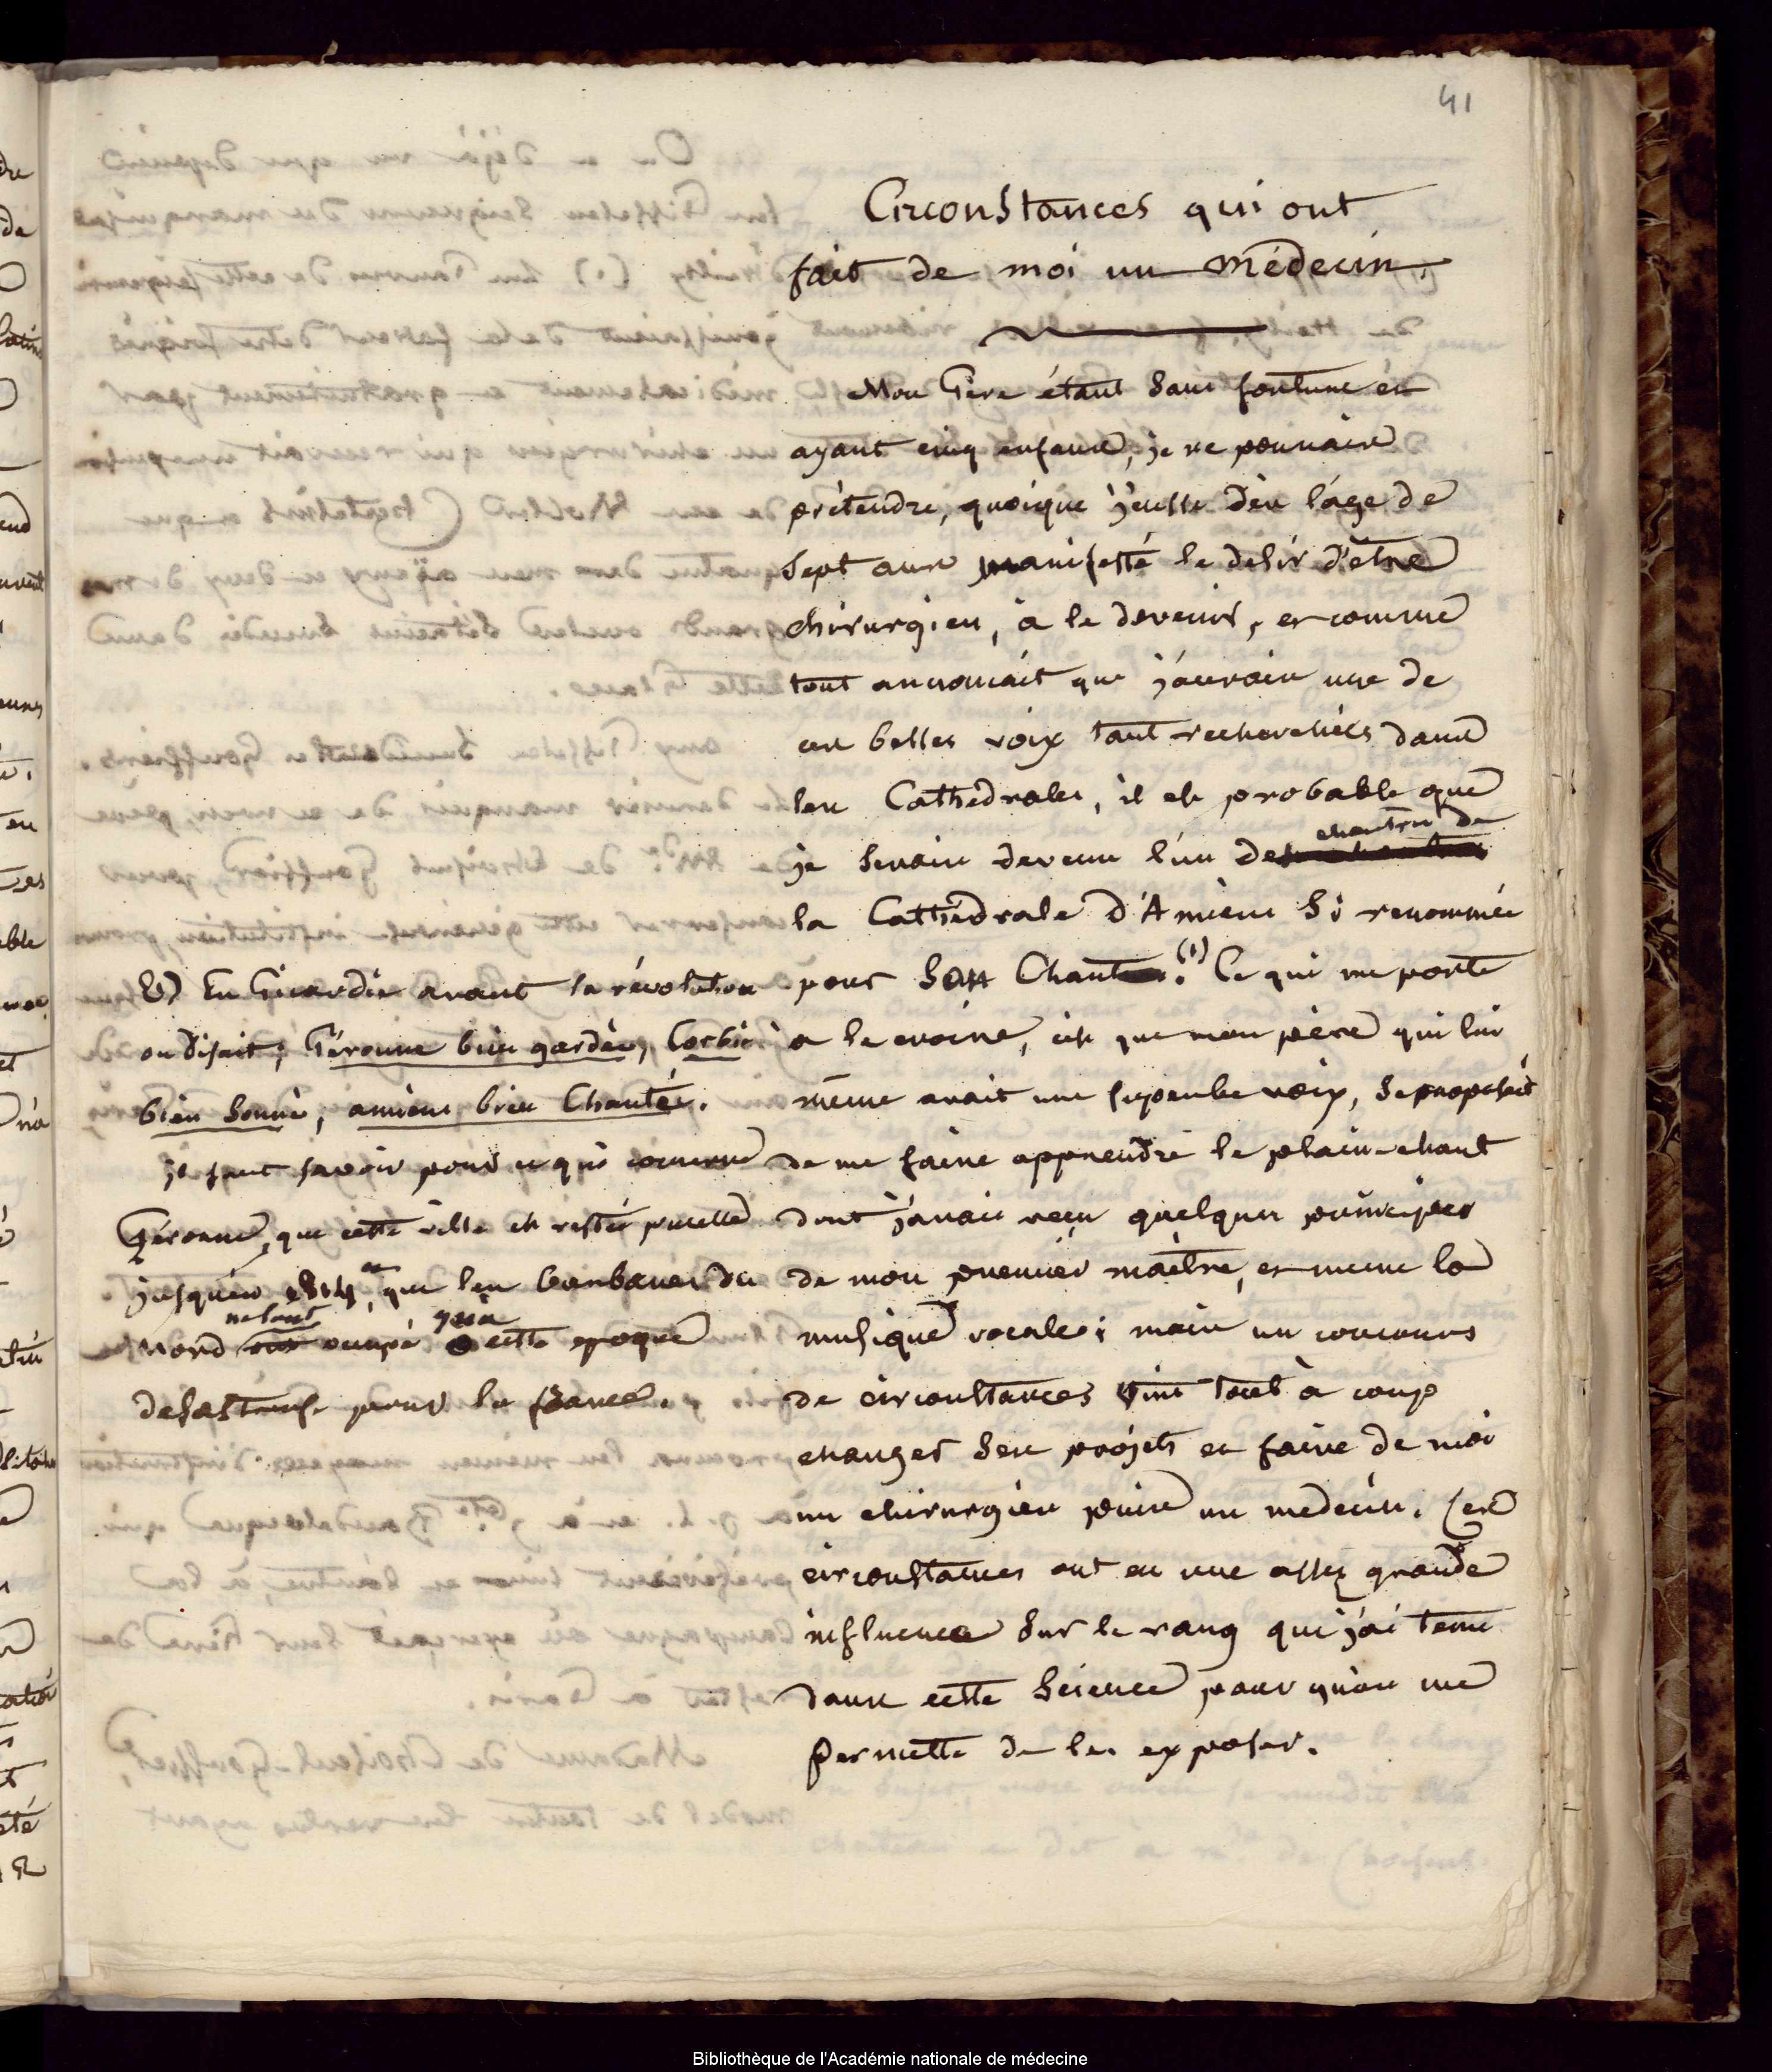 41
Circonstances qui ont
fait de moi un médecin.
Mon Père étant sans fortune et
ayant cinq enfans, je ne pouvais
prétendre, quoique j'eusse dès l'âge de
sept ans manifesté le desir d'être
chirurgien, à le devenir, et comme
tout annonçait que j'aurais une de
ces belles voix tant recherchées dans
les Cathédrales, il est probable que
je serais devenu l'un des chantres de
la Cathédrale d'Amiens si renommée
pour son Chant.(1) Ce qui me porte
a le croire, c'est que mon père qui lui
même avait une superbe voix, se proposait
de me faire apprendre le plain-chant
dont j'avais reçu quelques principes
de mon premier maître, et meme la
musique vocale; mais un concours
de circonstances vint tout à coup
changer ses projets et faire de moi
un chirurgien puis un medecin. Ces
circonstances ont eu une assez grande
influence sur le rang que j'ai tenu
dans cette Science pour qu'on me
permette de les exposer.
(1) En Picardie avant la révolution
on disait; Péronne bien gardée, Corbie
bien sonné, amiens bien Chantée.
il faut savoir pour ce qui concerne
Péronne, que cette ville est restée pucelle
jusqu'en 1814, que les barbares du
Nord ne l'ont occupé qu'à cette epoque
desastreuse pour la france.
Bibliothèque de l'Académie nationale de médecine